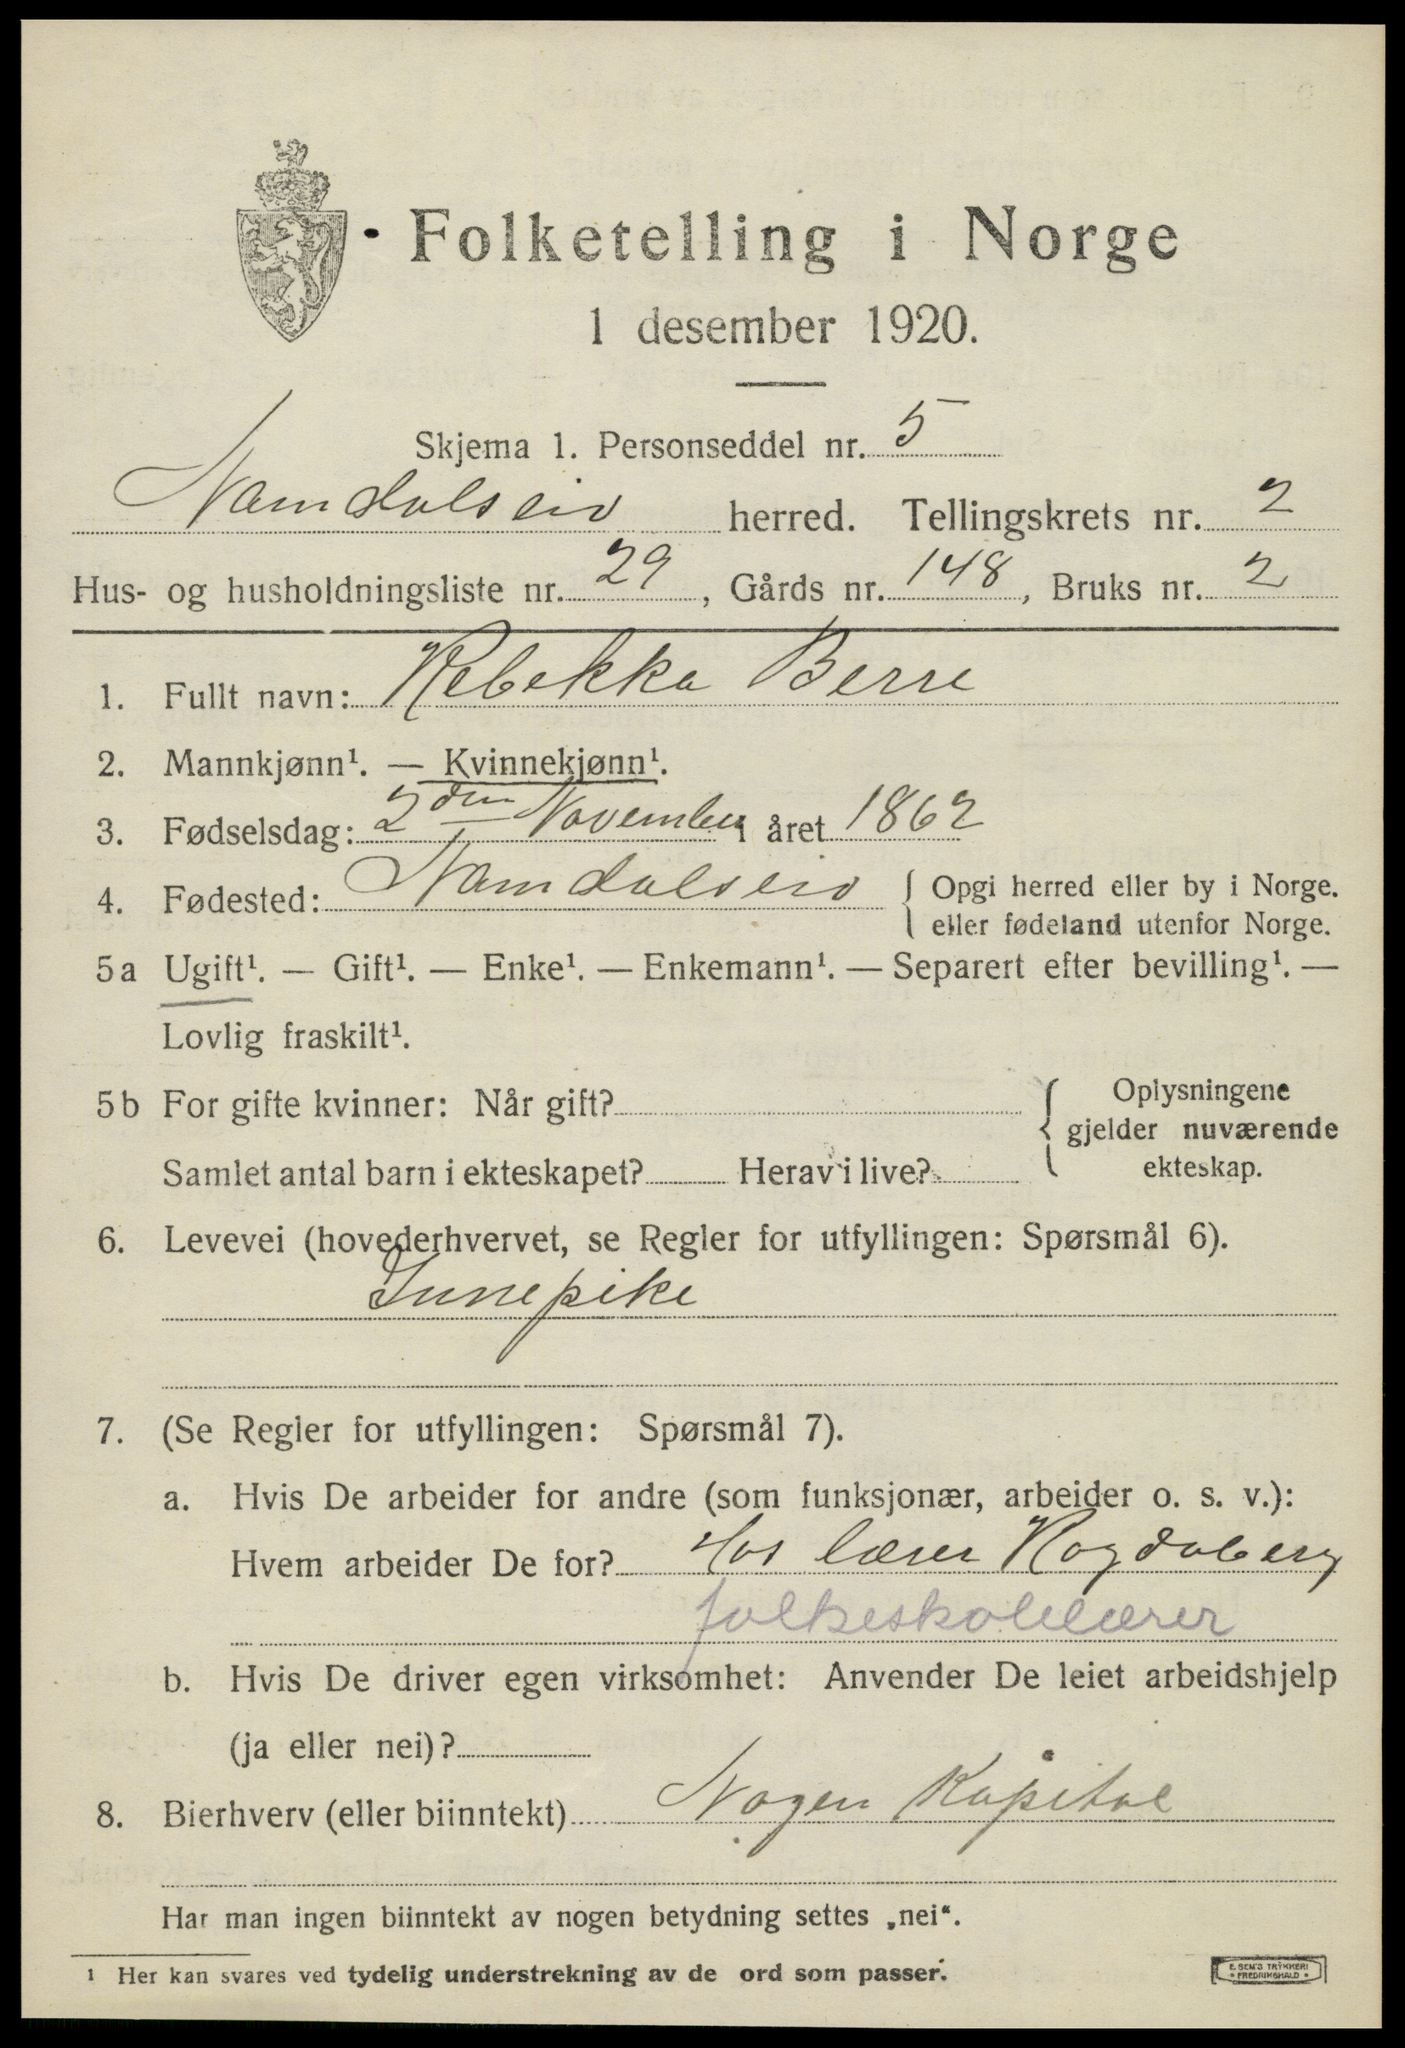 Folketelling i Norge
1 desember 1920.
Skjema 1. Personseddel nr. 5
Namdalseid herred. Tellingskrets nr. 2
Hus- og husholdningsliste nr. 29, Gårds nr. 148, Bruks nr. 2
1. Fullt navn: Rebekka Berre
2. Mannkjønn¹. — Kvinnekjønn¹.
3. Fødselsdag: 2den November i året 1862
4. Fødested: Namdalseid { Opgi herred eller by i Norge.
eller fødeland utenfor Norge.
5a Ugift¹. — Gift¹. — Enke¹. — Enkemann¹. — Separert efter bevilling¹. —
Lovlig fraskilt¹.
5b For gifte kvinner: Når gift? { Oplysningene
gjelder nuværende
Samlet antal barn i ekteskapet? Herav i live? ekteskap.
6. Levevei (hovederhvervet, se Regler for utfyllingen: Spørsmål 6).
Innepike
7. (Se Regler for utfyllingen: Spørsmål 7).
a. Hvis De arbeider for andre (som funksjonær, arbeider o. s. v.):
Hvem arbeider De for? Hos lærer
folkeskolelærer
b. Hvis De driver egen virksomhet: Anvender De leiet arbeidshjelp
(ja eller nei)?
8. Bierhverv (eller biinntekt) Nogen Kapital
Har man ingen biinntekt av nogen betydning settes „nei“.
¹ Her kan svares ved tydelig understrekning av de ord som passer.
E. SEM'S TRYKKERI
• FREDRIKSHALD •